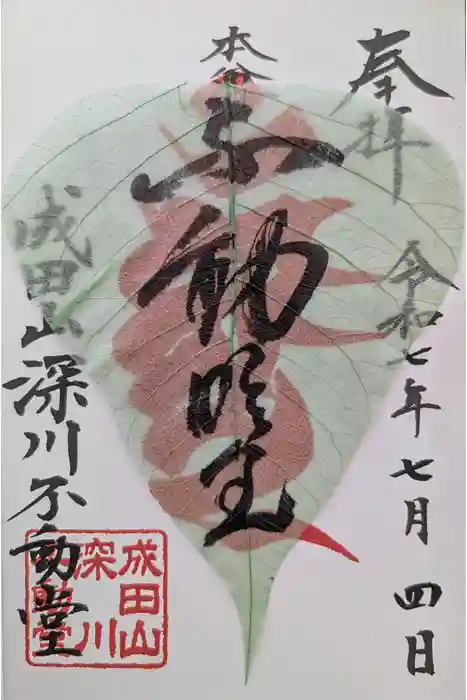 奉拝
令和七年七月四日
本尊
不動明王
成田山
深川不動堂
成田山
深川
不動堂